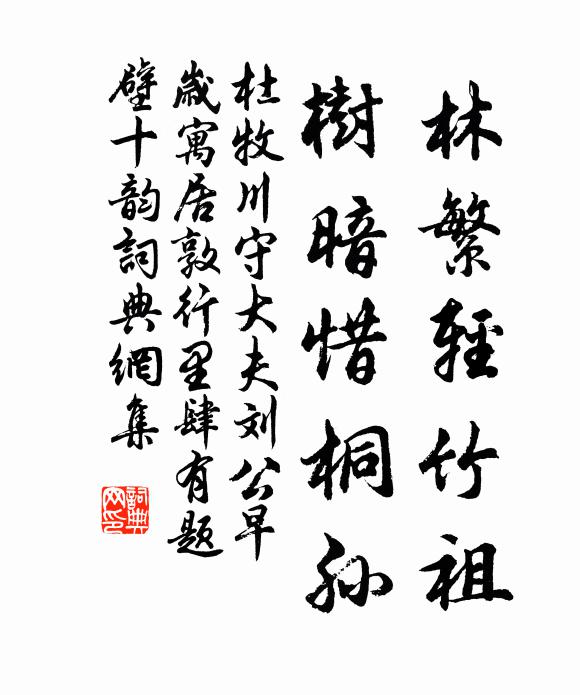 林繁輕竹祖
樹暗惜桐孙
杜牧川守大夫刘公早
歲寓居敦行里肆有题
壁十韵詞典網集
詞典网印